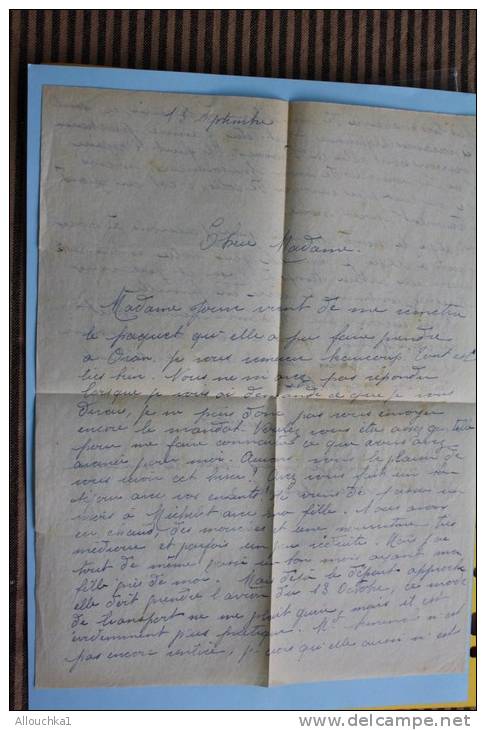 13 Septembre
Chère Madame.
Madame vient de me remettre
le paquet qu'elle a pu faire prendre
à Oran. Je vous remercie beaucoup. Tout est
très bien. Vous ne m'avez pas répondu
lorsque je vous ai demandé ce que je vous
devais, je ne puis donc pas vous envoyer
encore le mandat. Voulez vous être
pour me faire connaître ce que vous avez
avancé pour moi. Aurons nous le plaisir de
vous revoir cet hiver? Avez vous fait un bon
séjour avec vos enfants? Je viens de passer un
mois à Michelet avec ma fille. Nous avons
eu chaud, des mouches et une nourriture très
médiocre et parfois un peu réduite. Mais j'ai
tout de même passé un bon mois ayant ma
fille près de moi. Mais déjà le départ approche
elle doit prendre l'avion du 13 Octobre, ce mode
de transport ne me plaît guère, mais il est
évidemment plus pratique. Mme n'est
pas encore rentrée, je crois qu'elle aussi n'est
Allouchka1
© DELCAMPE.NET